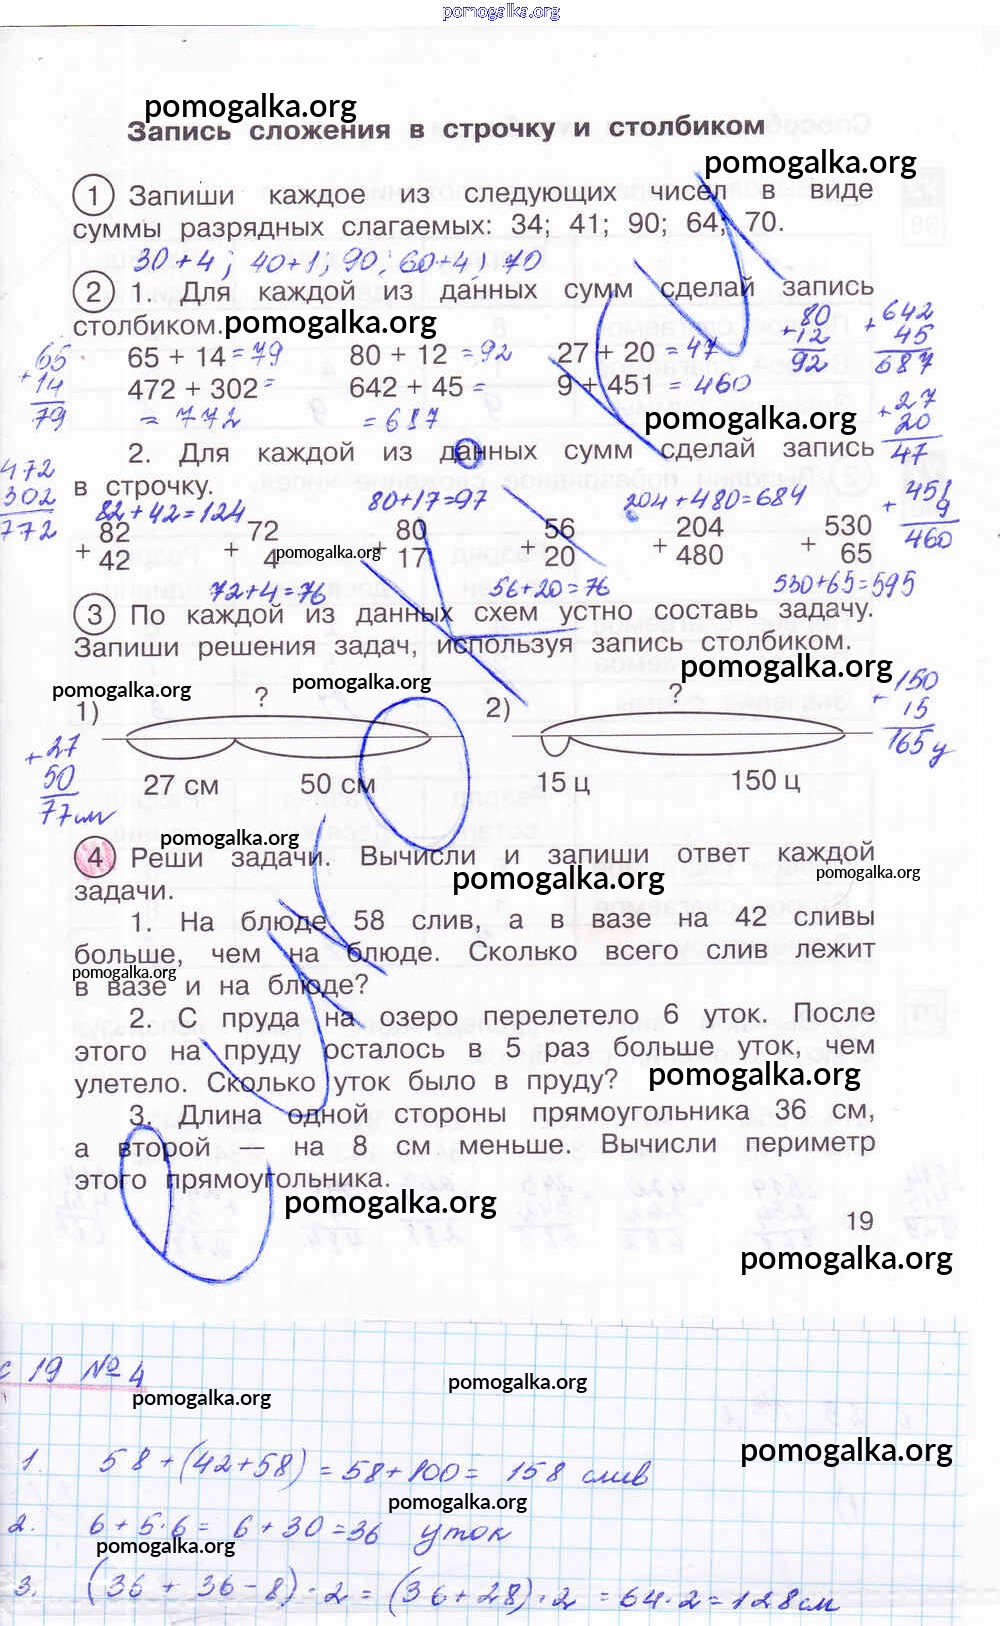 pomogalka.org
pomogalka.org
Запись сложения в строчку и столбиком
pomogalka.org
1 Запиши каждое из следующих чисел в виде
суммы разрядных слагаемых: 34; 41; 90; 64; 70.
30+4; 40+1; 90; 60+4; 70
2 1. Для каждой из данных сумм сделай запись
столбиком. pomogalka.org
65 + 14 = 79 80 + 12 = 92 27 + 20 = 47
472 + 302 = 642 + 45 = 9 + 451 = 460
= 772 = 687
65
+ 14
79
80
+ 12
92
642
+ 45
687
pomogalka.org
+ 27
20
47
2. Для каждой из данных сумм сделай запись
в строчку.
472
302
772
451
+ 9
460
82+42=124 80+17=97 204+480=684
82 72 80 56 204 530
+ 42 + 4 + 17 + 20 + 480 + 65
pomogalka.org
72+4=76 56+20=76 530+65=595
3 По каждой из данных схем устно составь задачу.
Запиши решения задач, используя запись столбиком.
pomogalka.org
pomogalka.org pomogalka.org
1) ? 2) ?
+ 150
15
165 ц
+ 27
50
77 см
27 см 50 см 15 ц 150 ц
pomogalka.org
4 Реши задачи. Вычисли и запиши ответ каждой
задачи.
pomogalka.org pomogalka.org
1. На блюде 58 слив, а в вазе на 42 сливы
больше, чем на блюде. Сколько всего слив лежит
pomogalka.org
в вазе и на блюде?
2. С пруда на озеро перелетело 6 уток. После
этого на пруду осталось в 5 раз больше уток, чем
улетело. Сколько уток было в пруду? pomogalka.org
3. Длина одной стороны прямоугольника 36 см,
а второй — на 8 см меньше. Вычисли периметр
этого прямоугольника.
pomogalka.org
19
pomogalka.org
с 19 № 4
pomogalka.org pomogalka.org
pomogalka.org
1. 58+(42+58) = 58+100= 158 слив
pomogalka.org
2. 6+5·6= 6+30=36 уток
pomogalka.org
3. (36 + 36-8)·2 = (36+28)·2 = 64·2=128см